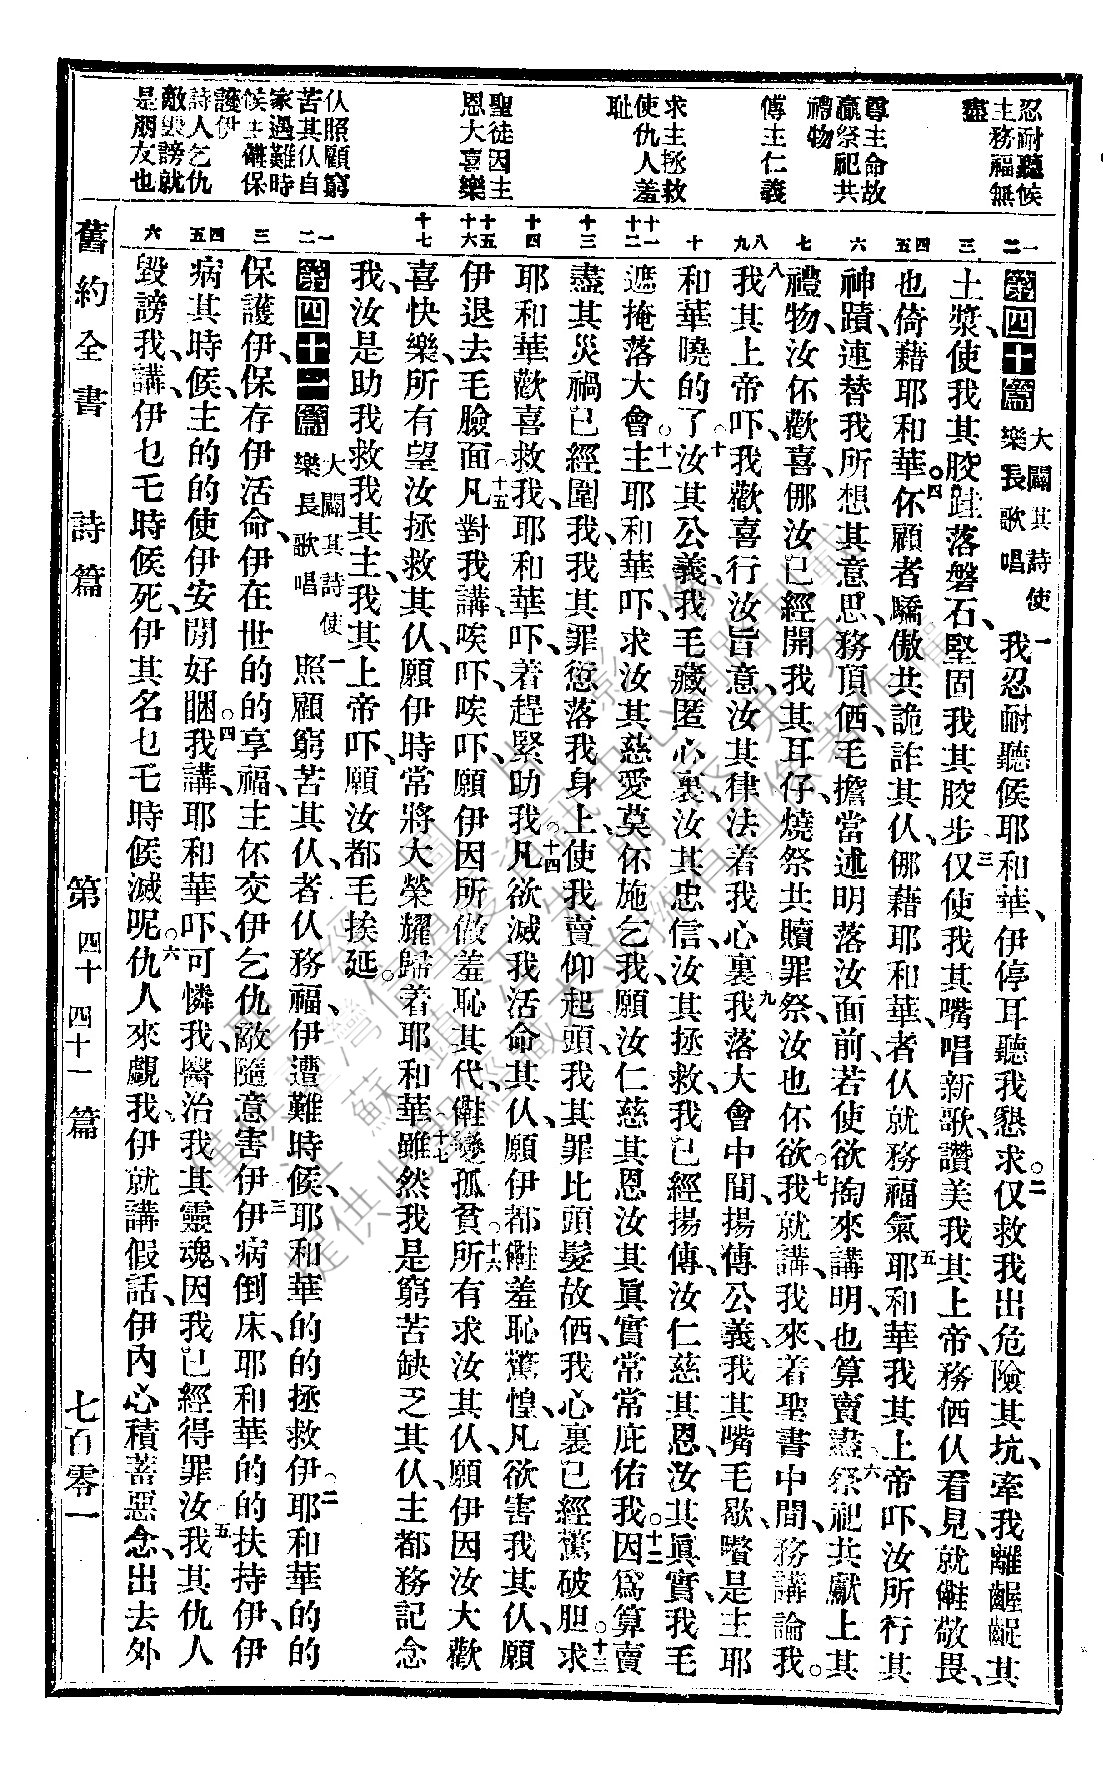 忍耐聽候
主務福無
盡
尊主命故
贏祭祀共
禮物
傳主仁義
求主拯救
使仇人羞
耻
聖徒因主
恩大喜樂
仈照顧窮
苦其仈自
家遇難時
候主𠆧保
護伊
詩人乞仇
敵毀謗就
是朋友也
一二 三 四五 六 七 八九 十 十一十二 十三 十四 十五十六 十七 一二 三 四五 六
第四十篇 大闢其詩使樂長歌唱 一我忍耐聽候耶和華、伊停耳聽我懇求。二仅救我出危險其坑、牽我離齷齪其
土漿、使我其骹跬落磐石、堅固我其骹步。三仅使我其嘴唱新歌、讚美我其上帝、務価仈看見、就𠆧敬畏、
也倚藉耶和華。四伓顧者驕傲共詭詐其仈、倻藉耶和華、者仈就務福氣。五耶和華我其上帝吓、汝所行其
神蹟、連替我所想其意思、務頂価、毛擔當述明落汝面前、若使欲掏來講明、也算賣盡。六祭祀共獻上其
禮物、汝伓歡喜、倻汝已經開我其耳仔、燒祭共贖罪祭、汝也伓欲。七我就講、我來着聖書中間、務講論我。
八我其上帝吓、我歡喜行汝旨意、汝其律法着我心裏。九我落大會中間、揚傳公義、我其嘴毛歇、嘴是主耶
和華曉的了。十汝其公義、我毛藏匿心裏、汝其忠信、汝其拯救、我已經揚傳、汝仁慈其恩、汝其眞實、我毛
遮掩落大會。十一主耶和華吓、求汝其慈愛、莫伓施乞我、願汝仁慈其恩、汝其眞實、常常庇佑我。十二因爲算賣
盡其災禍、已經圍我、我其罪愆落我身上、使我賣仰起頭、我其罪比頭髮故価、我心裏已經驚破胆。十三求
耶和華歡喜救我、耶和華吓、着趕緊助我。十四凡欲滅我活命其仈、願伊都𠆧羞恥驚惶、凡欲害我其仈、願
伊退去毛臉面。十五凡對我講、唉吓、唉吓、願伊因所做羞恥其代、𠆧變孤貧。十六所有求汝其仈、願伊因汝大歡
喜快樂、所有望汝拯救其仈、願伊時常將大榮耀歸着耶和華。十七雖然我是窮苦缺乏其仈、主都務記念
我、汝是助我救我其主、我其上帝吓、願汝都毛挨延。
第四十一篇 大闢其詩使樂長歌唱 一照顧窮苦其仈、者仈務福、伊遭難時候、耶和華的的拯救伊。二耶和華的的
保護伊、保存伊活命、伊在世的的享福、主伓交伊乞仇敵隨意害伊。三伊病倒床、耶和華的的扶持伊、伊
病其時候、主的的使伊安閒好睏。四我講、耶和華吓、可憐我、醫治我其靈魂、因我已經得罪汝。五我其仇人
毀謗我、講、伊乜乇時候死、伊其名乜乇時候滅呢。六仇人來覷我、伊就講假話、伊內心積蓄惡念、出去外
舊約全書 詩篇 第四十 四十一篇 七百零一